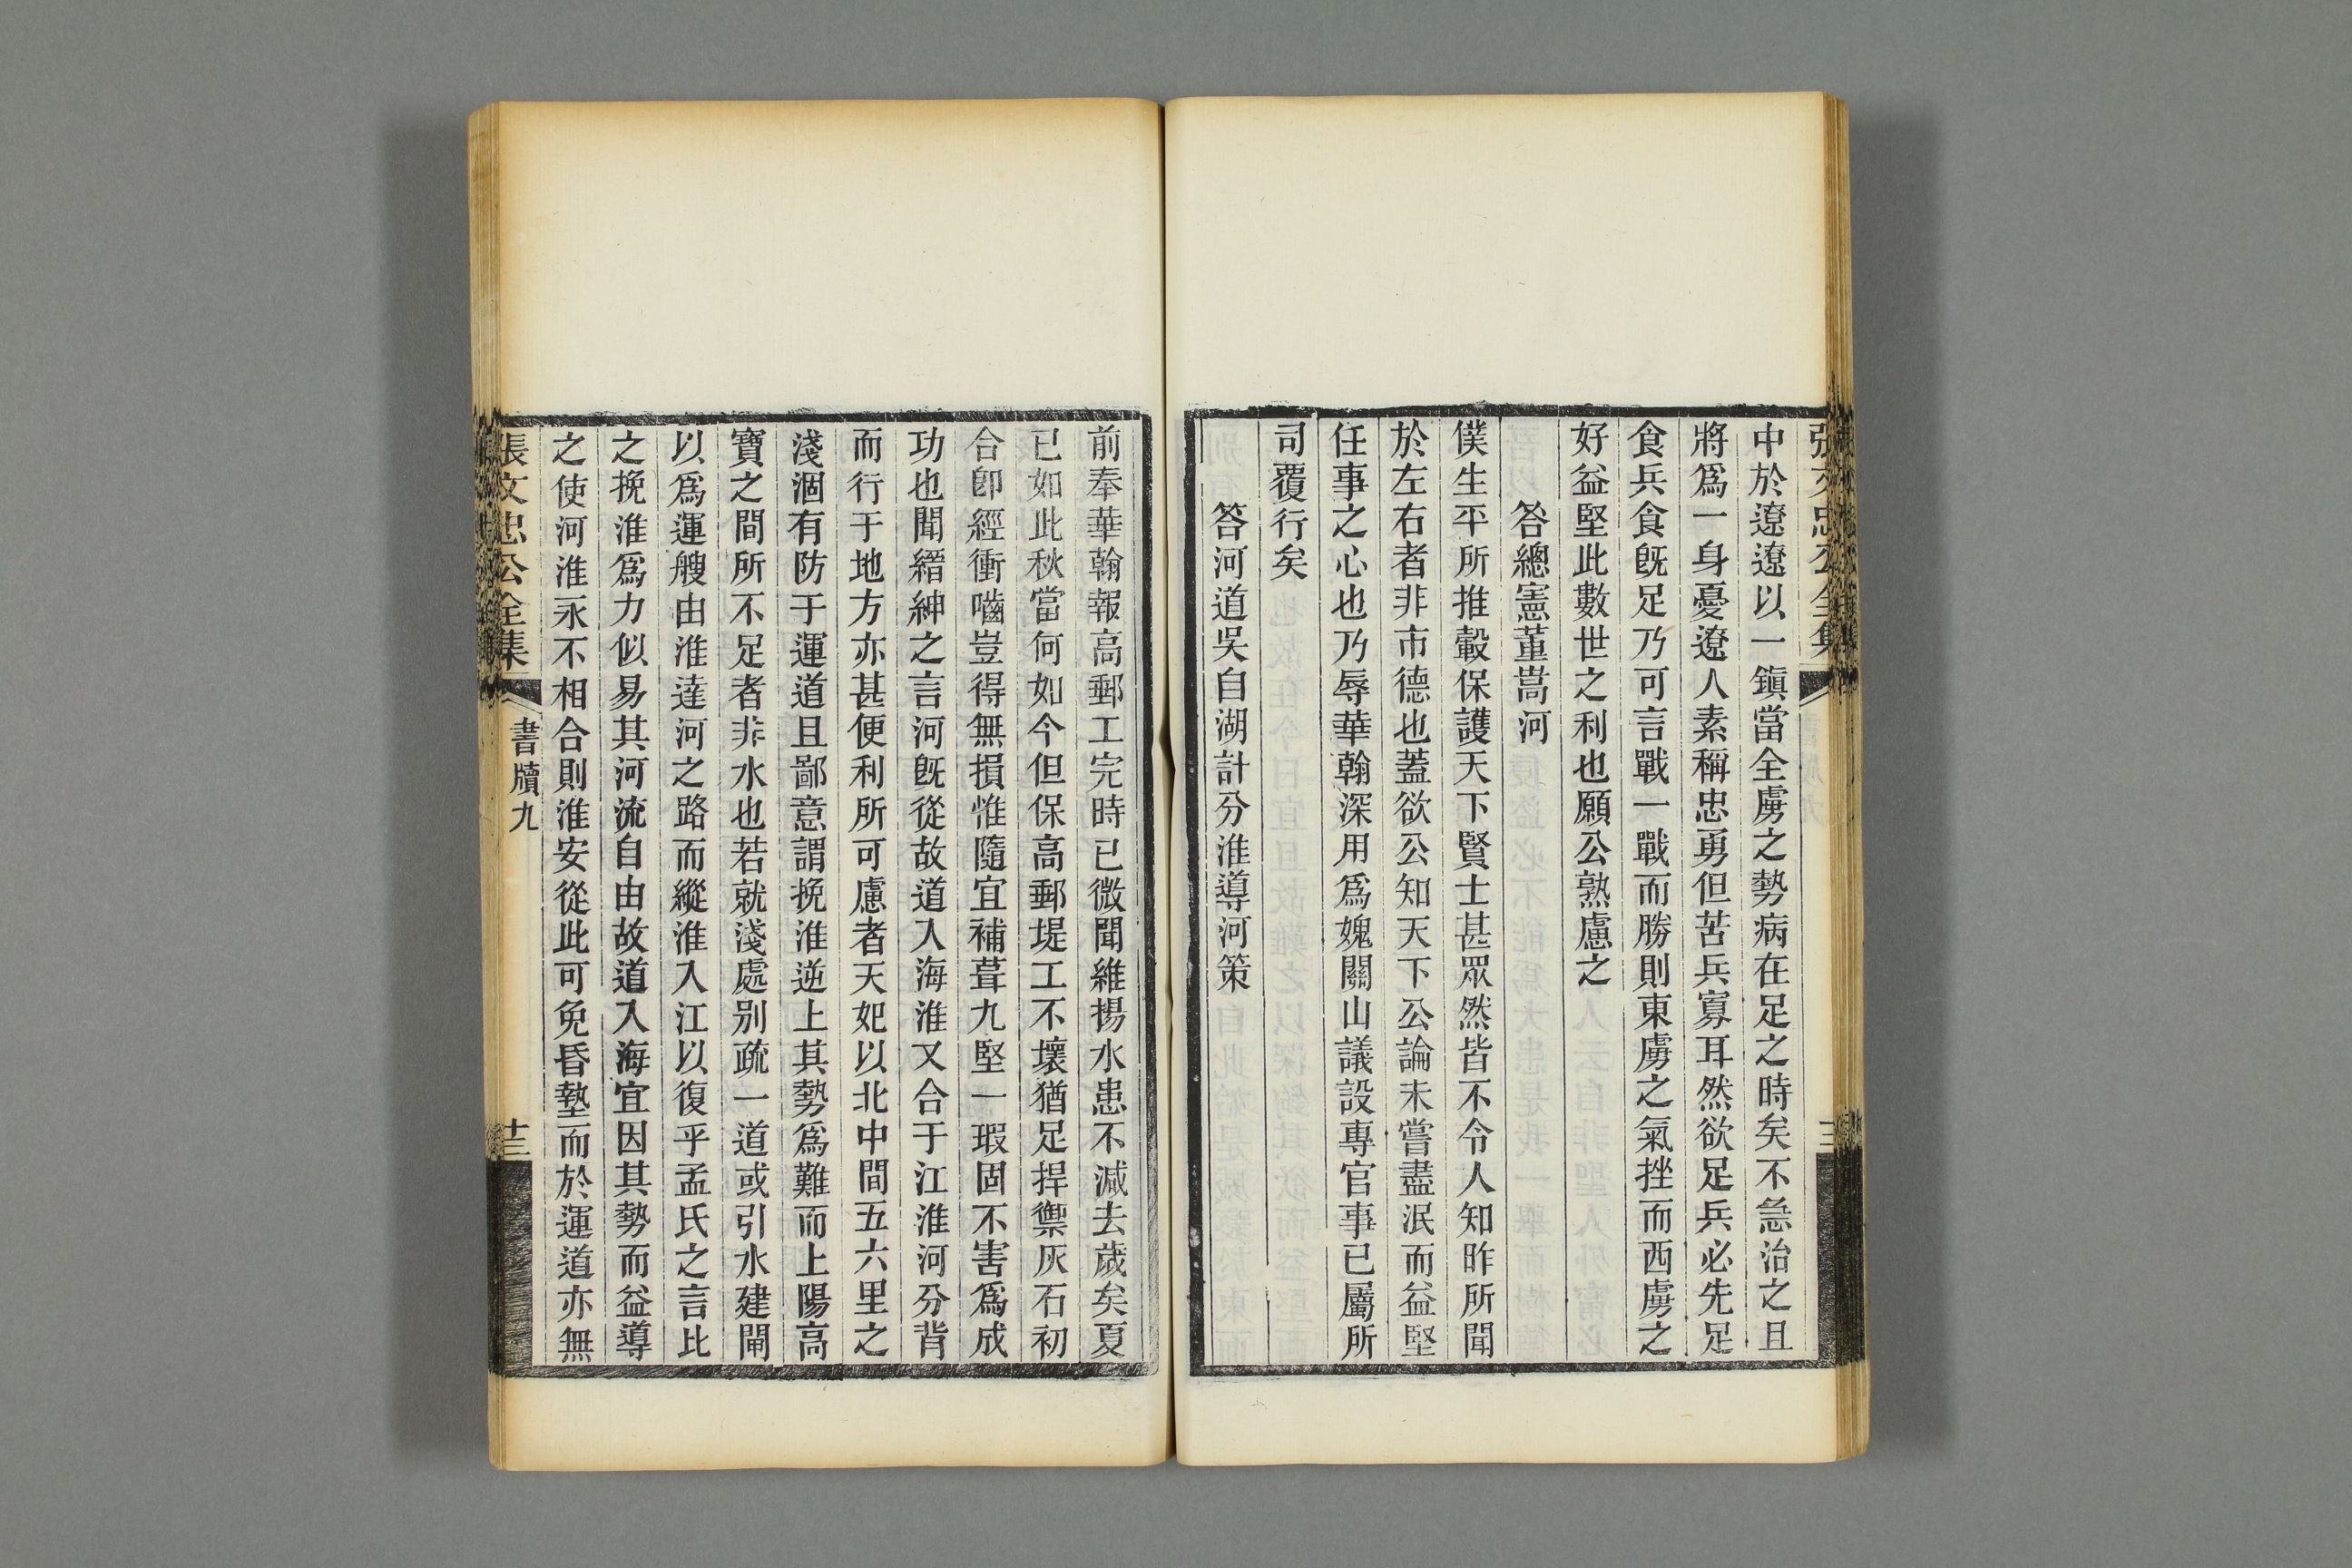 張文忠公全集
中於遼遼以一鎮當全虜之勢病在足之時矣不急治之且
將爲一身憂遼人素稱忠勇但苦兵寡耳然欲足兵必先足
食兵食旣足乃可言戰一戰而勝則東虜之氣挫而西虜之
好益堅此數世之利也願公熟慮之
答總憲董嵩河
僕生平所推轂保護天下賢士甚眾然皆不令人知昨所聞
於左右者非市德也蓋欲公知天下公論未嘗盡泯而益堅
任事之心也乃辱華翰深用爲媿關山議設專官事已屬所
司覆行矣
答河道吳自湖計分淮導河策
前奉華翰報高郵工完時已微聞維揚水患不減去歲矣夏
已如此秋當何如今但保高郵堤工不壞猶足捍禦灰石初
合卽經衝嚙豈得無損惟隨宜補葺九堅一瑕固不害爲成
功也聞縉紳之言河旣從故道入海淮又合于江淮河分背
而行于地方亦甚便利所可慮者天妃以北中間五六里之
淺涸有防于運道且鄙意謂挽淮逆上其勢爲難而上陽高
寶之間所不足者非水也若就淺處別疏一道或引水建閘
以爲運艘由淮達河之路而縱淮入江以復乎孟氏之言比
之挽淮爲力似易其河流自由故道入海宜因其勢而益導
之使河淮永不相合則淮安從此可免昏墊而於運道亦無
張文忠公全集
書牘九
十三